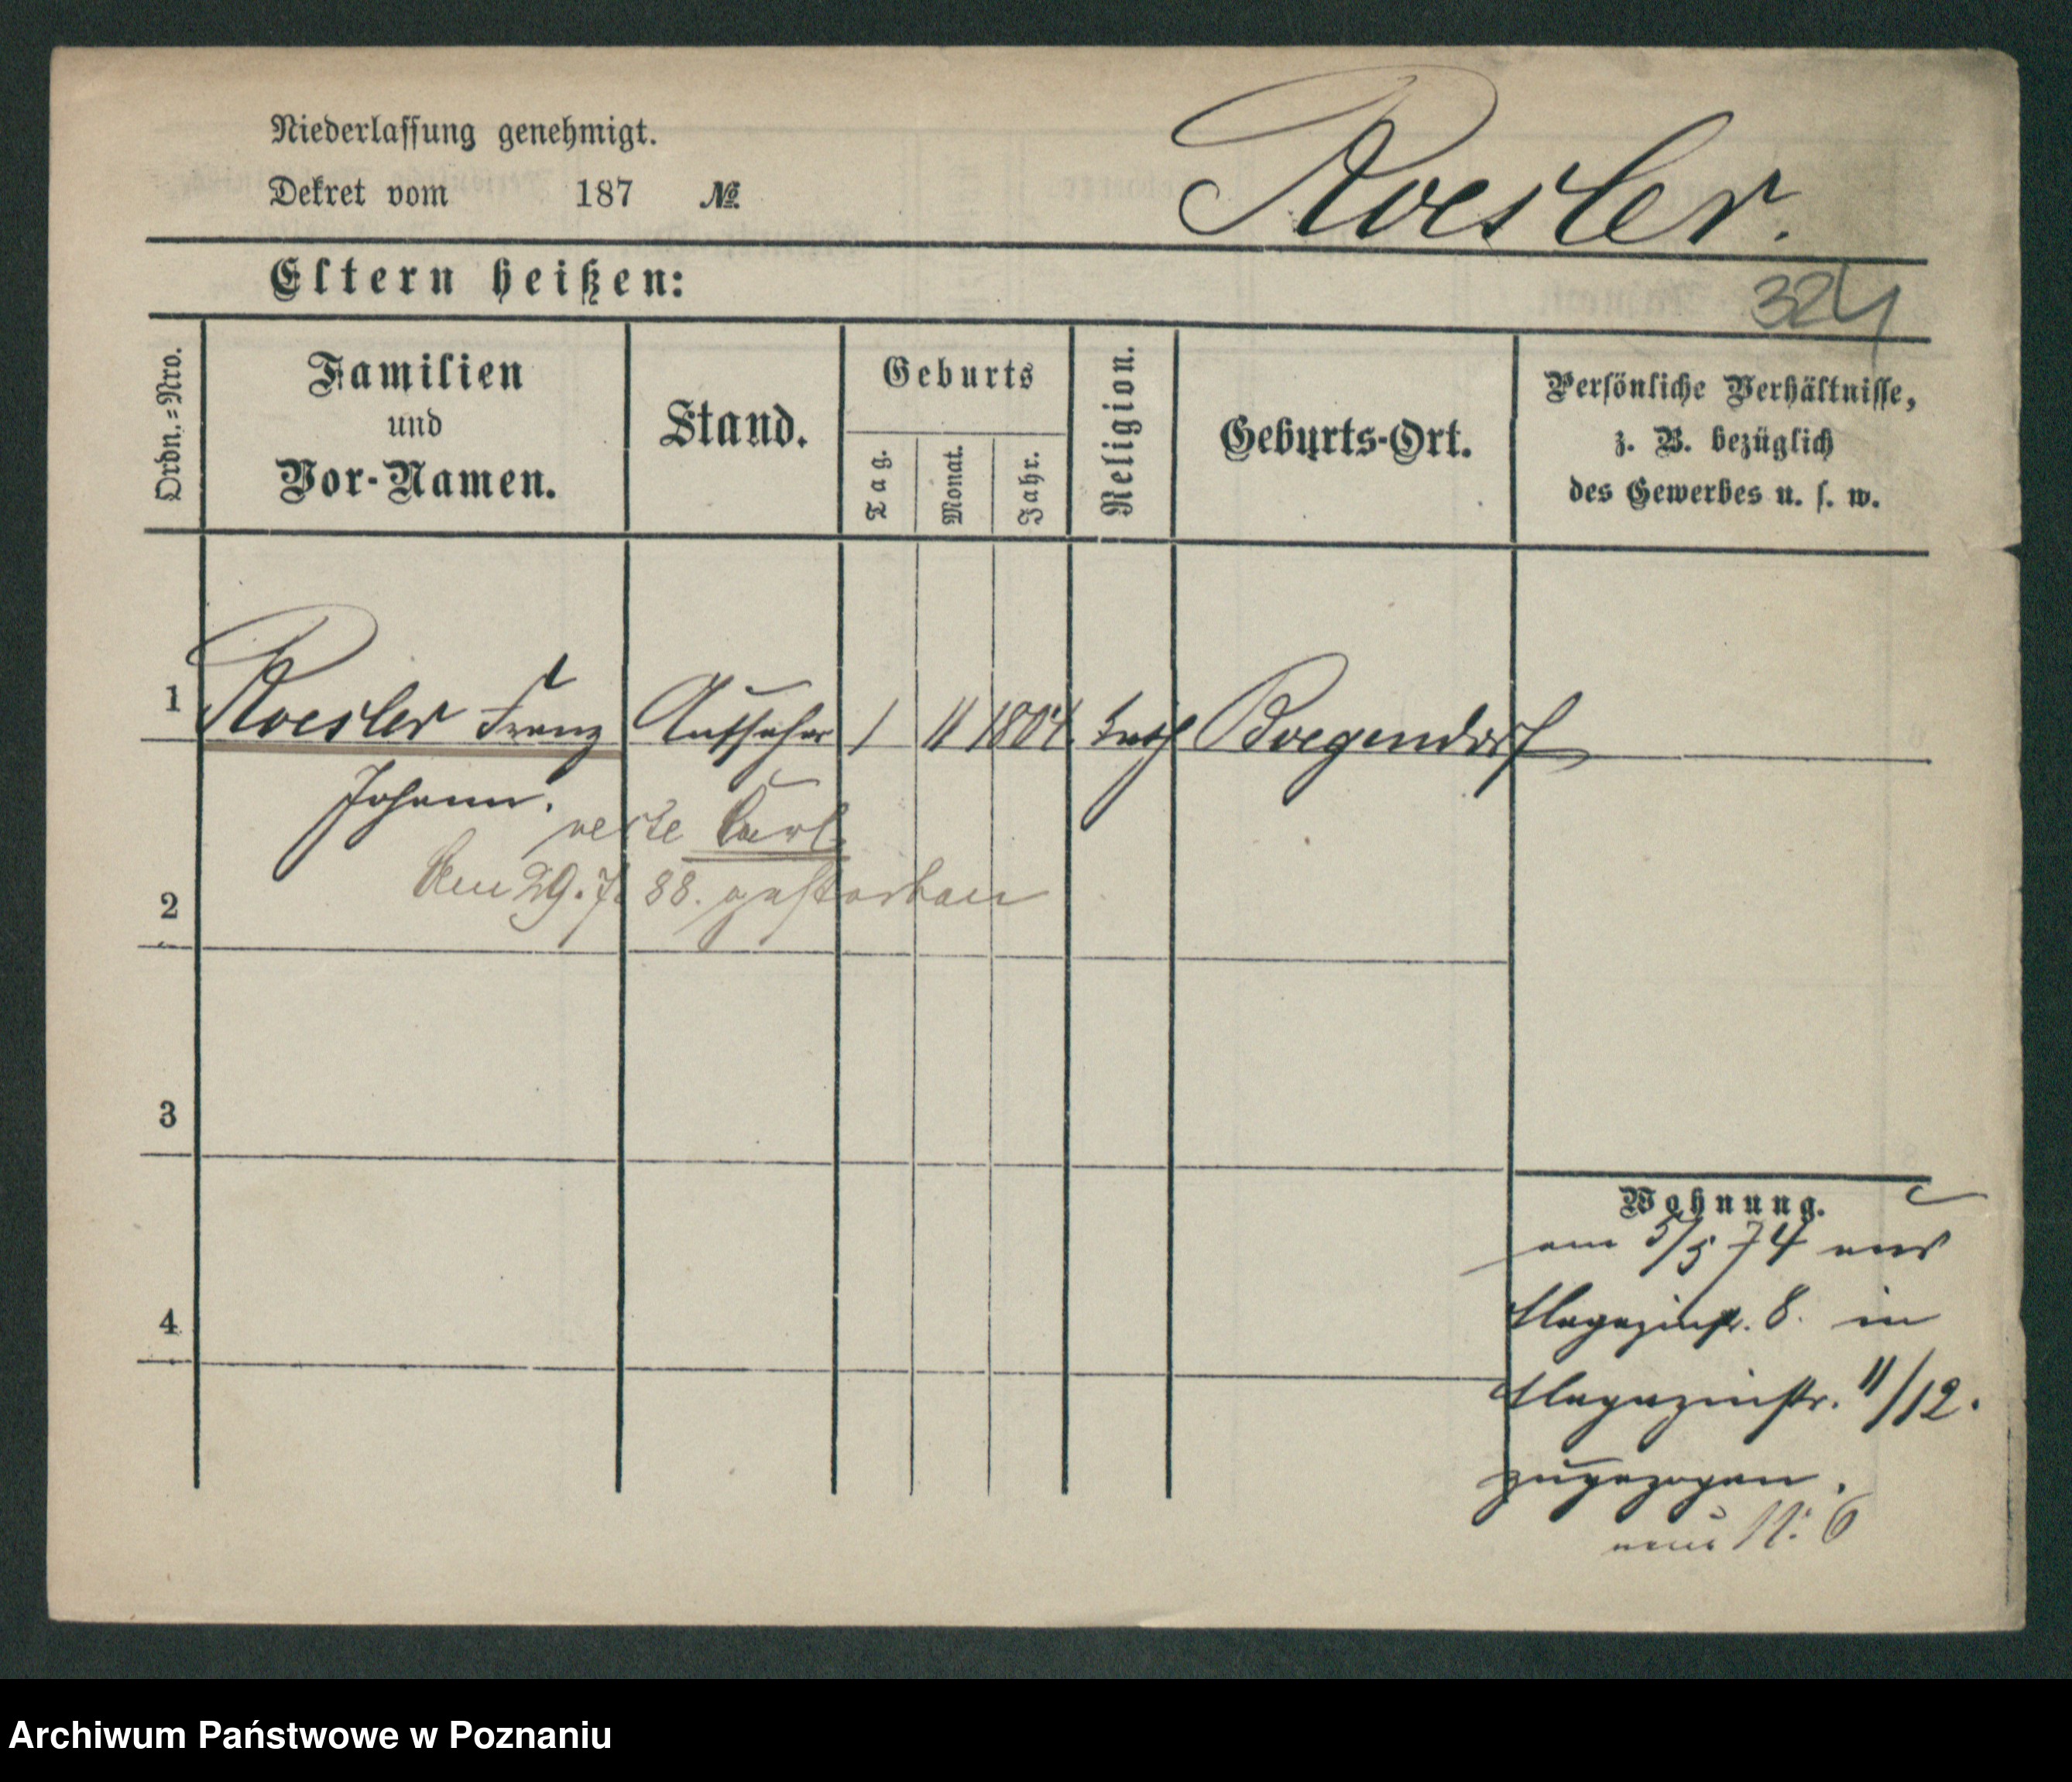 Niederlassung genehmigt.
Dekret vom 187 №
Roesler.
Eltern heißen:
324
Ordn.-Nro.
Familien
und
Vor-Namen.
Stand.
Geburts
Tag.
Monat.
Jahr.
Religion.
Geburts-Ort.
Persönliche Verhältnisse,
z. B. bezüglich
des Gewerbes u. s. w.
1 Roesler Franz Aufseher 1 11 1804. kath Boegendorf
Johann.
recte Carl
Am 29.7. 88. gestorben
2
3
4
Wohnung.
am 5/5 74 aus
Magazinstr. 8. in
Magazinstr. 11/12.
zugezogen.
neue N: 6
Archiwum Państwowe w Poznaniu